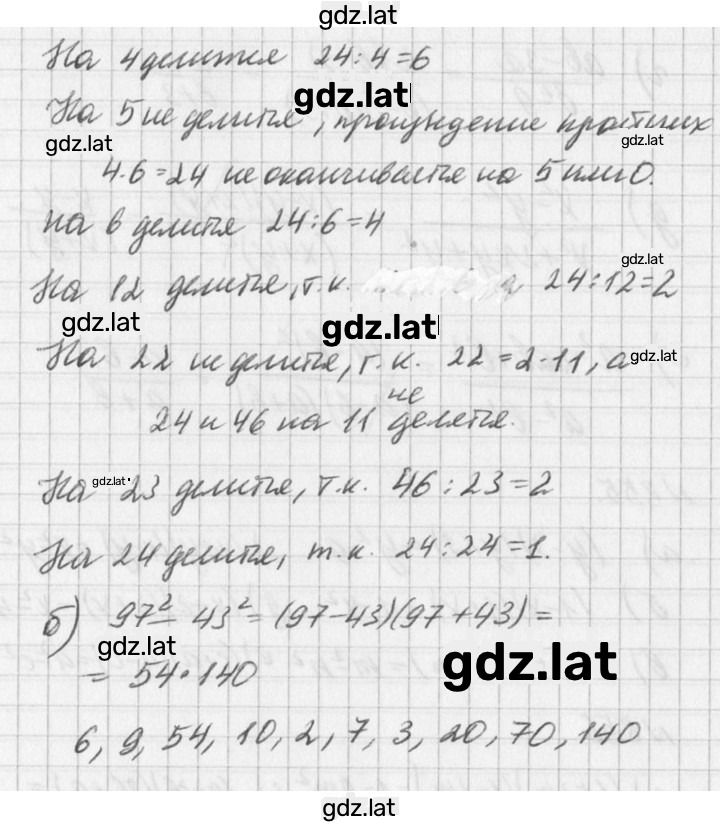 gdz.lat
На 4 делится 24:4=6
gdz.lat
На 5 не делится, произведение крайних
gdz.lat gdz.lat
4·6=24 не оканчивается на 5 или 0.
На 6 делится 24:6=4
gdz.lat
На 12 делится, т.к. 24:12=2
gdz.lat gdz.lat
На 22 не делится, т.к. 22=2·11, а gdz.lat
не
24 и 46 на 11 делятся.
На gdz.lat 23 делится, т.к. 46:23=2
На 24 делится, т.к. 24:24=1.
б) 97²-43²=(97-43)(97+43)=
gdz.lat gdz.lat
= 54·140
6, 9, 54, 10, 2, 7, 3, 20, 70, 140
gdz.lat